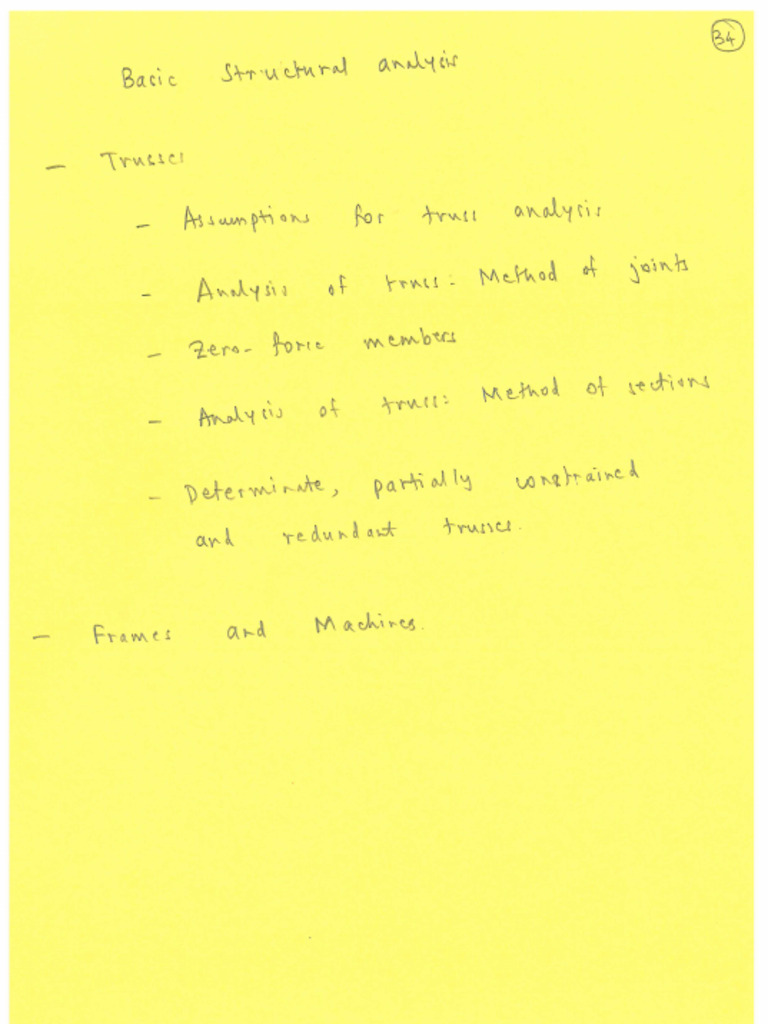 34
Basic Structural analysis
- Trusses
- Assumptions for truss analysis
- Analysis of truss: Method of joints
- Zero-force members
- Analysis of truss: Method of sections
- Determinate, partially constrained
and redundant trusses.
- Frames and Machines.